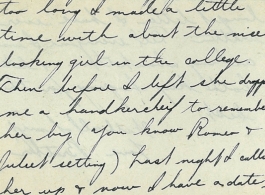 too long I made a little
time with about the nise
looking girl in the college.
Then before I left she dropp
me a handkerbeif to remembe
her by (you know Romeo &
Juliet setting) Last night I calle
her up & now I have a date